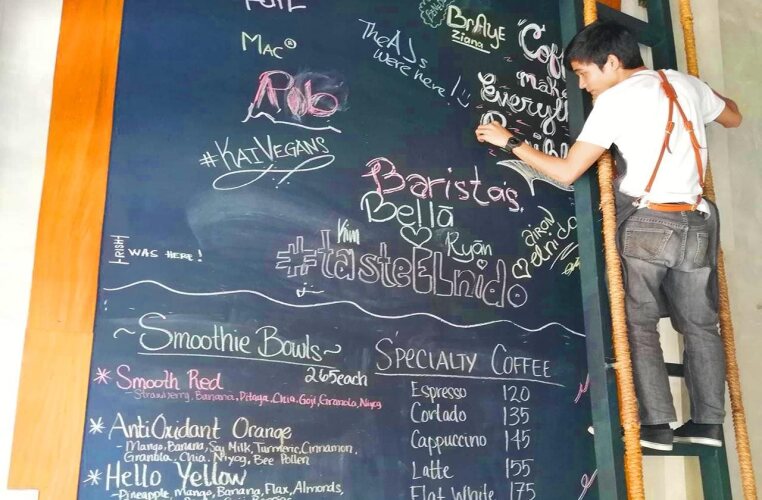 Mac®
Rob
#KAIVEGANS
The AJs
were here!
BrAye
Ziana
"Coffee
makes
Everything
Barista's
Bella
Kim
Ryan
#tasteELnido
elnido
IRISH WAS HERE!
~Smoothie Bowls~
265 each
* Smooth Red
- Strawberry, Banana, Pitaya, Chia, Goji, Granola, Niyog
* AntiOxidant Orange
- Mango, Banana, Soy Milk, Turmeric, Cinnamon,
Granola, Chia, Niyog, Bee Pollen
* Hello Yellow
- Pineapple, Mango, Banana, Flax, Almonds,
SPECIALTY COFFEE
Espresso 120
Cortado 135
Cappuccino 145
Latte 155
Flat White 175